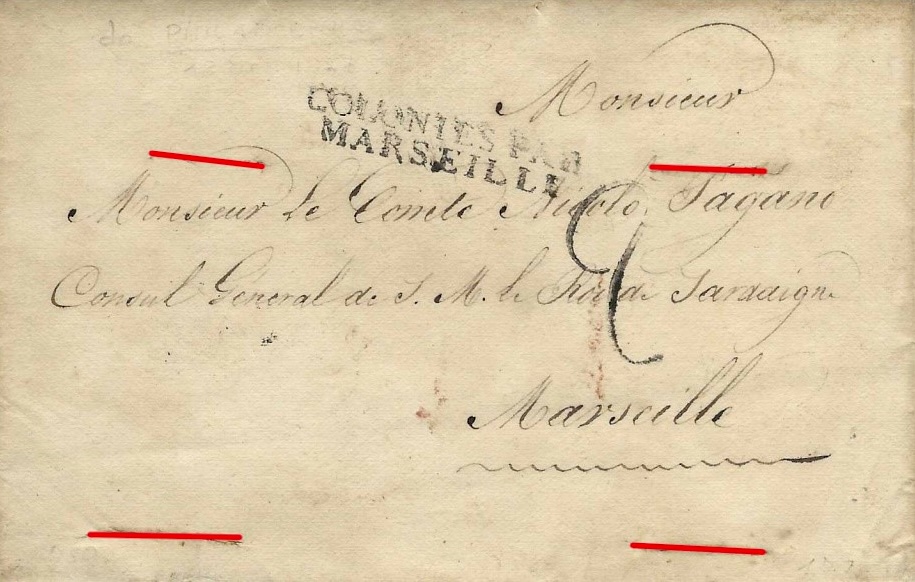 Monsieur
COLONIES PAR
MARSEILLE
Monsieur Le Comte Nicolo Pagano
Consul Général de S. M. le Roi de Sardaigne
2
Marseille